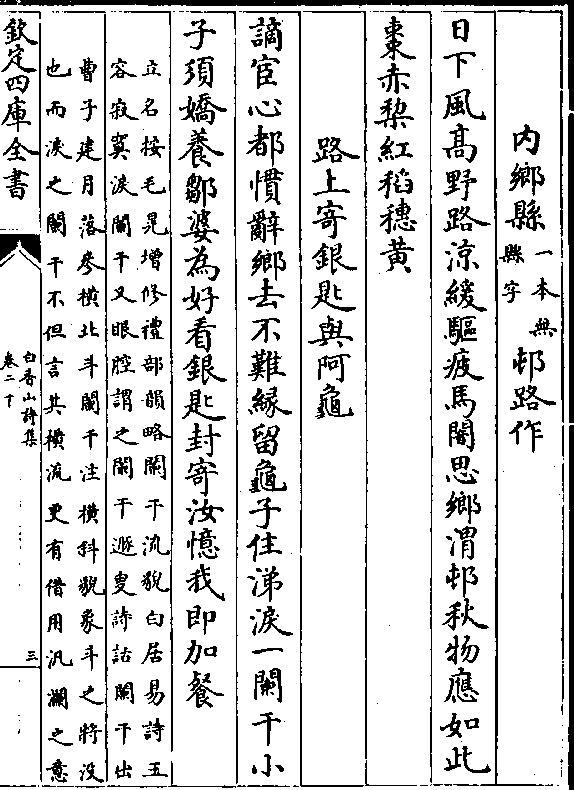 内鄉縣一本無縣字邨路作
日下風髙野路涼緩驅疲馬闇思鄉渭邨秋物應如此
棗赤梨紅稻穗黄
路上寄銀匙與阿龜
謫宦心都慣辭鄉去不難縁留龜子住涕淚一闌干小
子須嬌養鄒婆為好看銀匙封寄汝憶我即加餐
立名按毛晃增修禮部韻略闌干流貌白居易詩玉
容寂寞淚闌干又眼眶謂之闌干遯叟詩話闌干出
曹子建月落參橫北斗闌干注橫斜貌象斗之將没
也而淚之闌干不但言其橫流更有借用汎瀾之意
欽定四庫全書
白香山詩集
卷二下
三